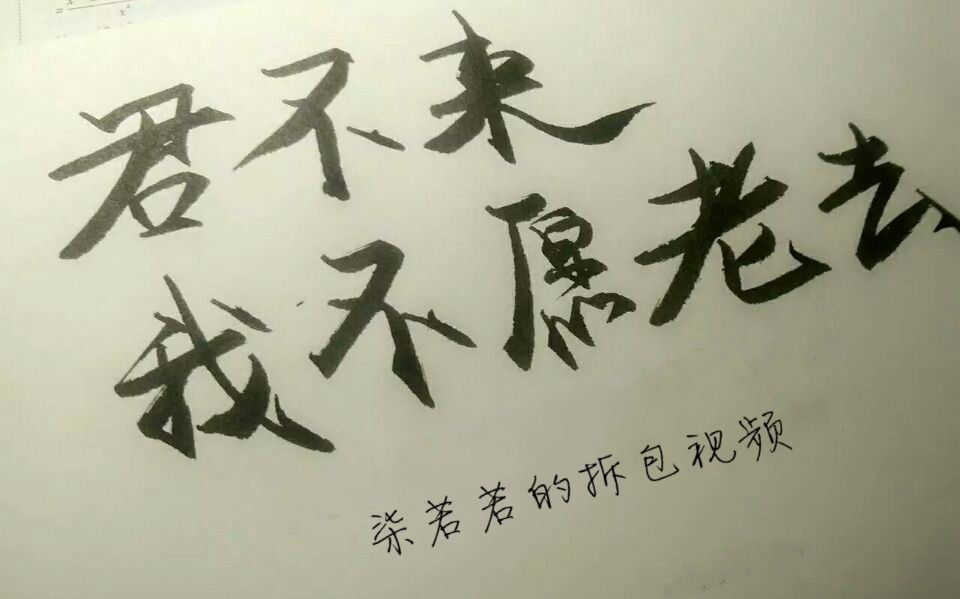 君不来
我不愿老去
柒若若的拆包视频